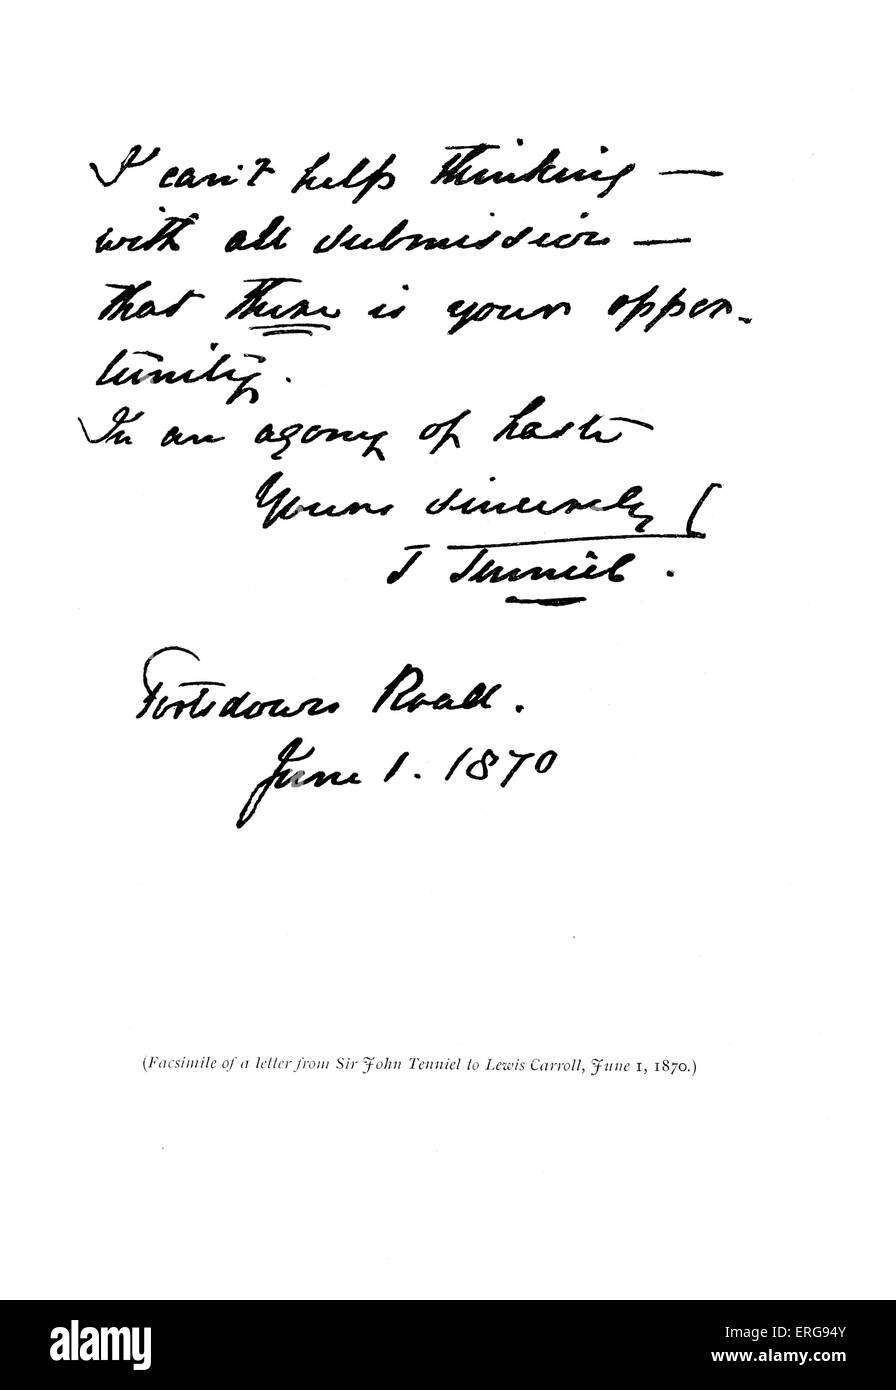 I can't help thinking —
with all submission —
that there is your oppor-
tunity.
In an agony of haste
Yours sincerely
J Tenniel.
Portsdown Road.
June 1. 1870
(Facsimile of a letter from Sir John Tenniel to Lewis Carroll, June 1, 1870.)
alamy
Image ID: ERG94Y
www.alamy.com